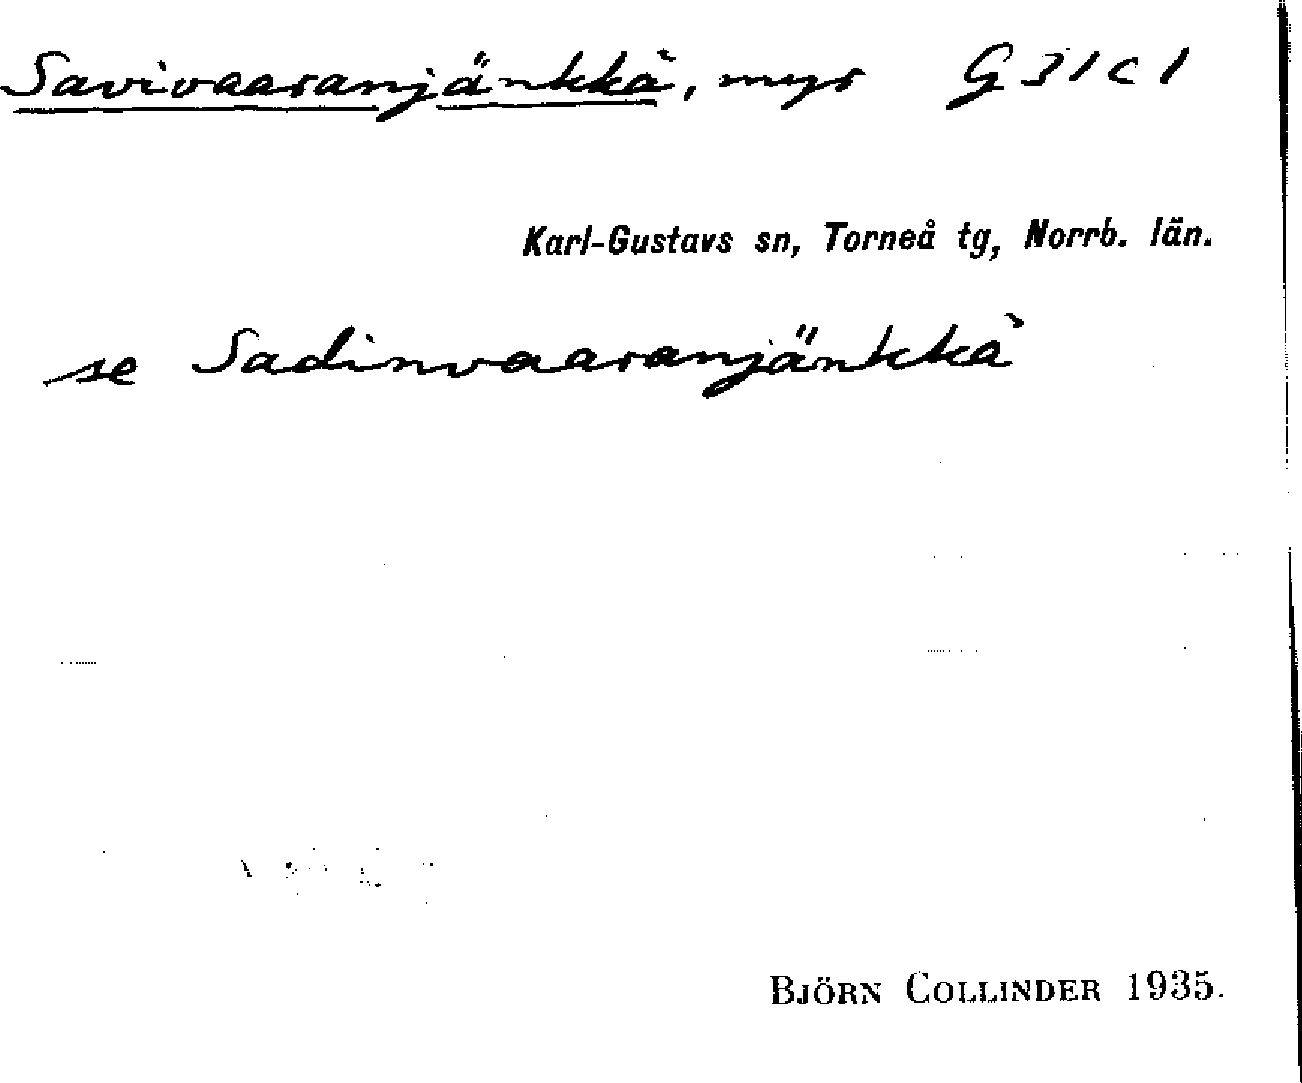 Savivaaranjänkkä, myr G 31 c 1
Karl-Gustavs sn, Torneå tg, Norrb. län.
se Sadinvaaranjänkkä
BJÖRN COLLINDER 1935.